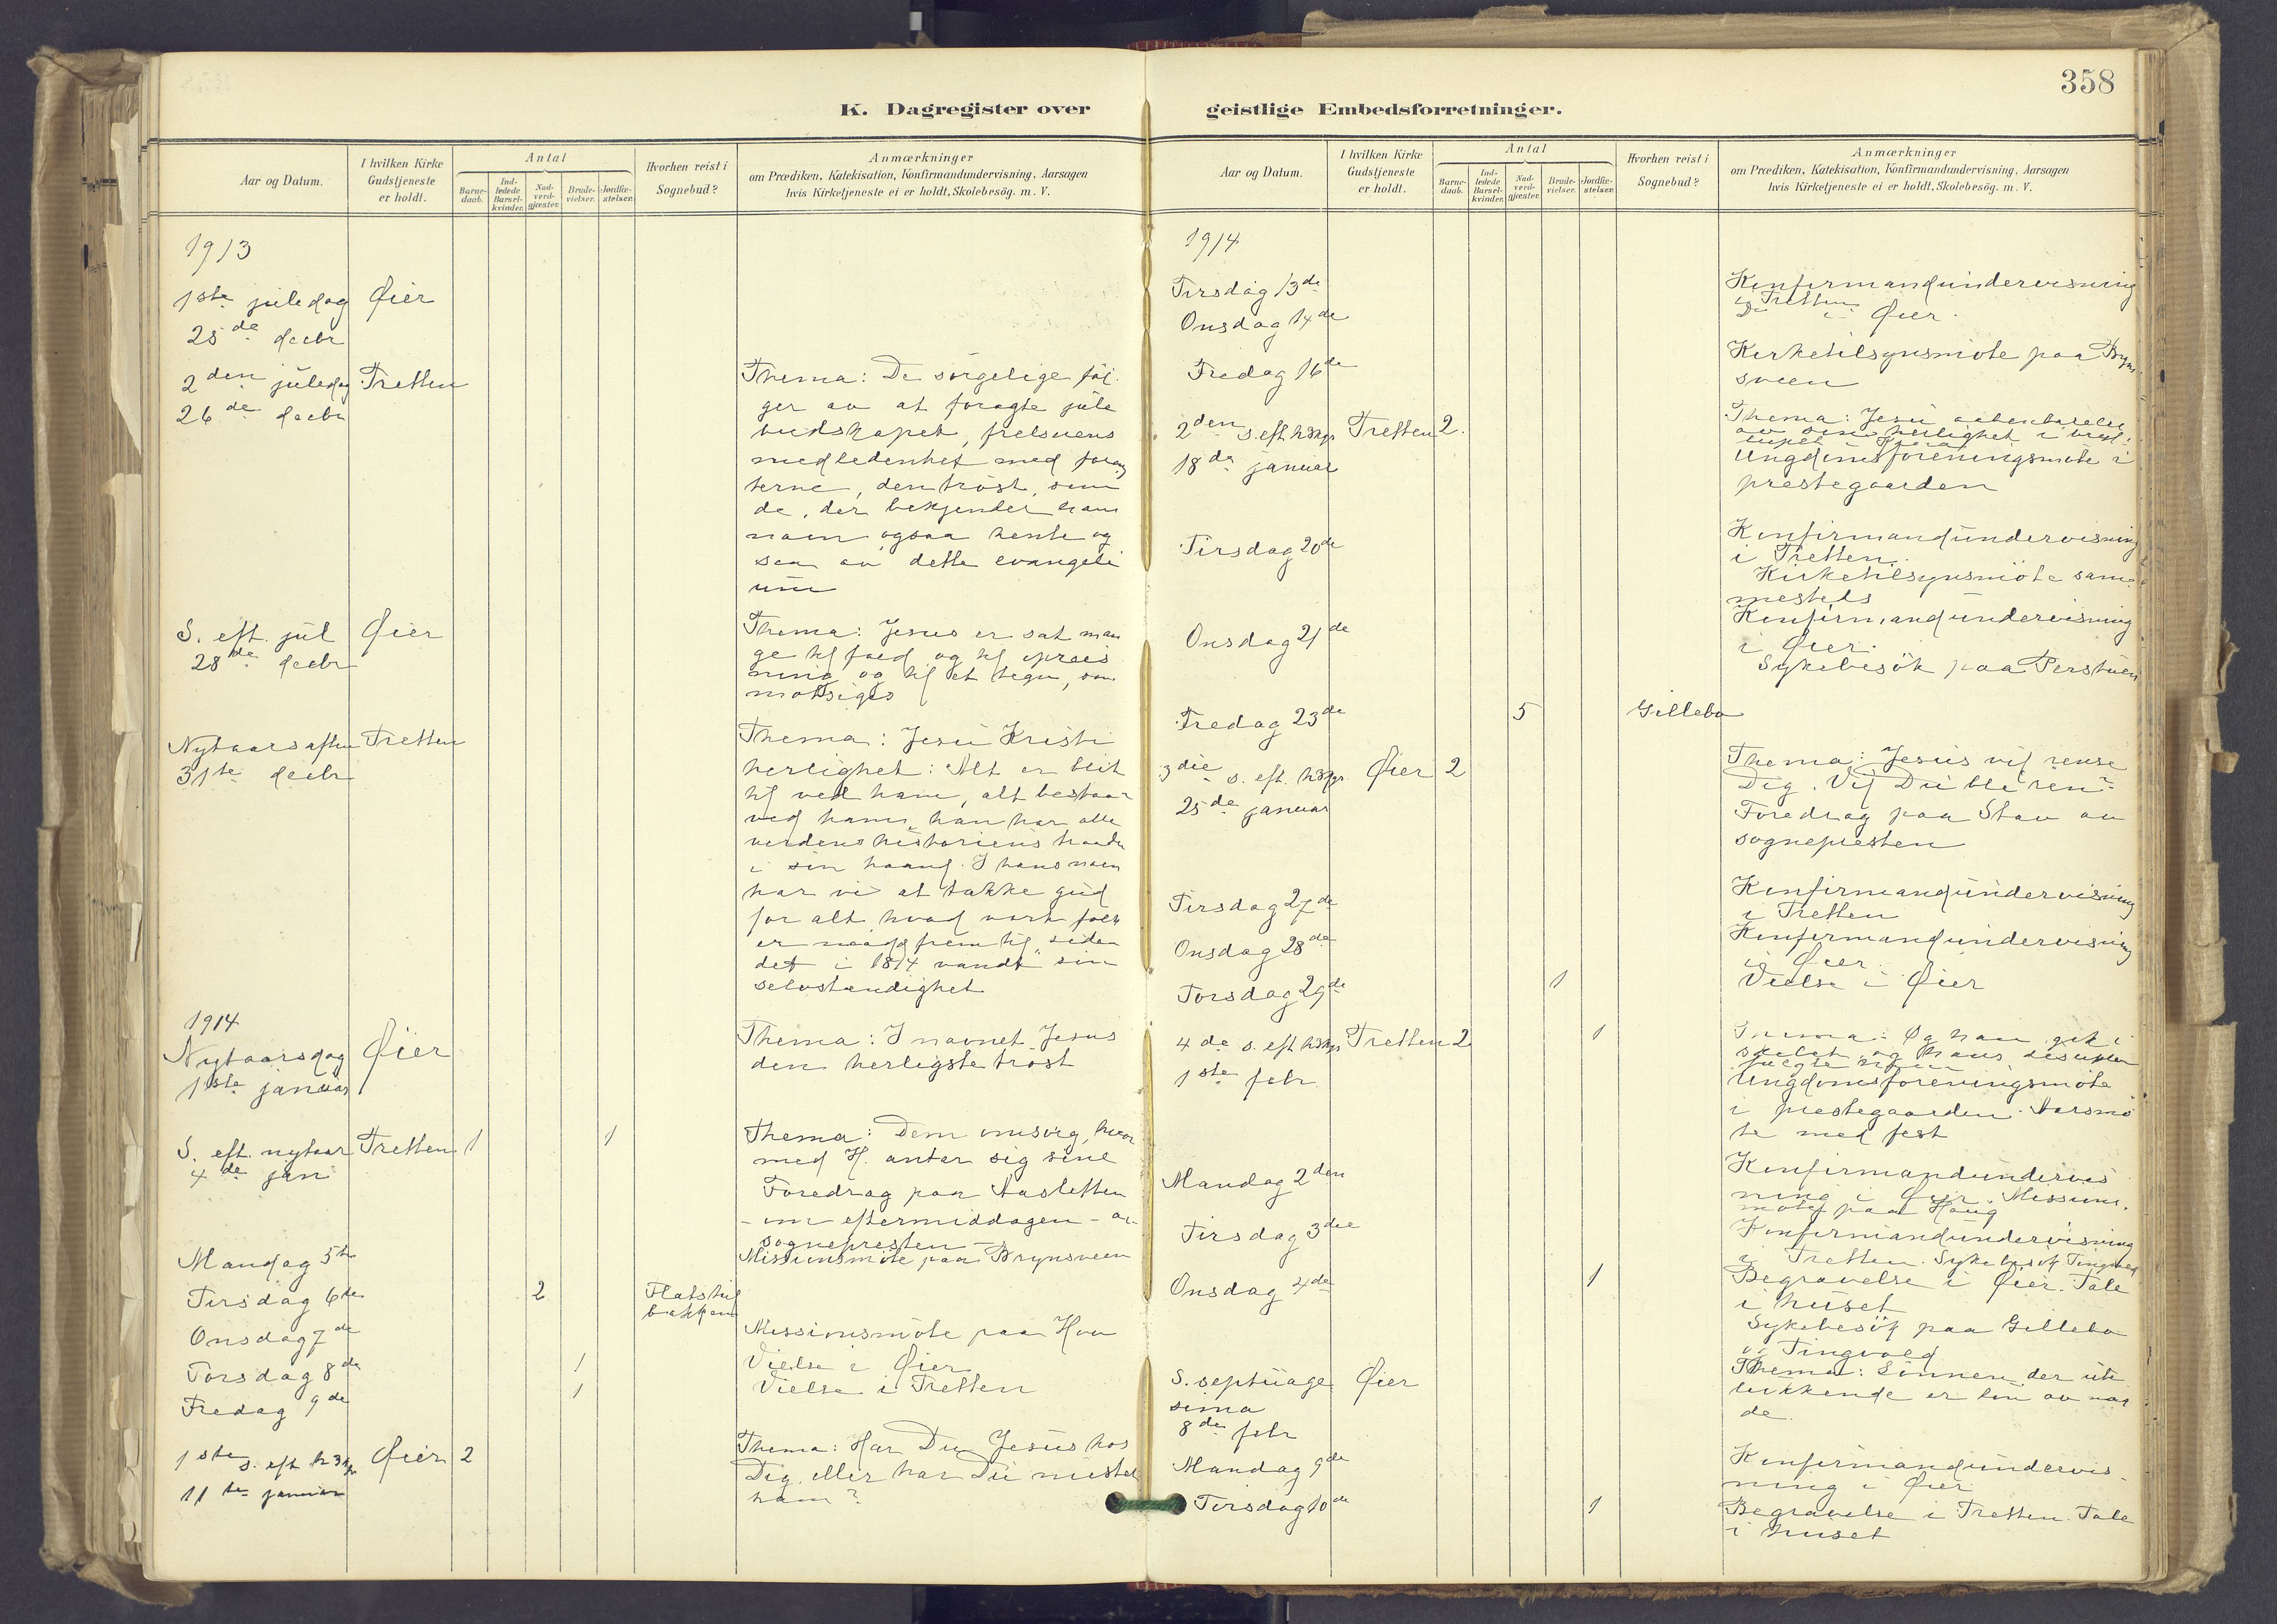 K. Dagregister over
Aar og Datum.
I hvilken Kirke
Gudstjeneste
er holdt.
Antal
Barne-
daab.
Ind-
ledede
Barsel-
kvinder.
Nad-
verd-
gjæster.
Brude-
vielser.
Jordfæ-
stelser.
Hvorhen reist i
Sognebud?
Anmærkninger
om Prædiken, Katekisation, Konfirmandundervisning, Aarsagen
hvis Kirketjeneste ei er holdt, Skolebesög. m. V.
1913
1ste juledag Øier
25de decbr
2den juledag Tretten
26de decbr
Thema: De sörgelige föl
ger av at foragte jule
budskapet, frelserens
medledenhet med forag
terne, den tröst, som
de, der bekjender hans
navn ogsaa hente og
saa av dette evangeli
um
S. eft. jul Øier
28de decbr
Thema: Jesus er sat man
ge til fald og til opreis
ning og til et tegn, som
motsiges
Nytaarsaften Tretten
31te decbr
Thema: Jesu Kristi
herlighet: Alt er blit
til ved ham, alt bestaar
ved ham, han har alle
verdenshistoriens traade
i sin haand. I hans navn
har vi at takke gud
for alt, hvad vort folk
er naadd frem til, siden
det i 1814 vandt sin
selvstændighet
1914
Nytaarsdag Øier
1ste januar
Thema: I navnet Jesus
den herligste tröst
S. eft. nytaar Tretten 1 1
4de jan
Thema: Den omsorg, hvor
med H. antar sig sine
Foredrag paa Aasletten
- om eftermiddagen - av
sognepresten -
Mandag 5te
Missionsmöte paa Brynsveen
Tirsdag 6te 2 Flatstul
bakken
Onsdag 7de
Missionsmöte paa Hov
Torsdag 8de 1 Vielse i Øier
Fredag 9de 1 Vielse i Tretten
1ste s. eft h3kgr Øier 2
11te januar
Thema: Har Du Jesus hos
Dig, eller har Du mistet
ham?
358
geistlige Embedsforretninger.
Aar og Datum.
I hvilken Kirke
Gudstjeneste
er holdt.
Antal
Barne-
daab.
Ind-
ledede
Barsel-
kvinder.
Nad-
verd-
gjæster.
Brude-
vielser.
Jordfæ-
stelser.
Hvorhen reist i
Sognebud?
Anmærkninger
om Prædiken, Katekisation, Konfirmandundervisning, Aarsagen
hvis Kirketjeneste ei er holdt, Skolebesög. m. V.
1914
Tirsdag 13de
Konfirmandundervisning
i Tretten
Onsdag 14de
Do i Øier.
Fredag 16de
Kirketilsynsmöte paa Bryn
sveen
2den s. eft h3kgr Tretten 2.
18de januar
Thema: Jesu aabenbarelse
av sin herlighet i bryl
lupet i Kana
Ungdomsforeningsmöte i
prestegaarden
Tirsdag 20de
Konfirmandundervisning
i Tretten.
Kirketilsynsmöte sam
mesteds
Onsdag 21de
Konfirmandundervisning
i Øier.
Sykebesök paa Perstuen
Fredag 23de 5 Gillebo
3die s. eft. h3kgr. Øier 2
25de januar
Thema: Jesus vil rense
Dig. Vil Du bli ren?
Foredrag paa Stav av
sognepresten
Tirsdag 27de
Konfirmandundervisning
i Tretten
Onsdag 28de
Konfirmandundervisning
i Øier.
Torsdag 29de 1 Vielse i Øier
4de s. eft h3kgr Tretten 2 1
1ste febr.
Thema: Og han gik i
skibet, og hans disipler
fulgte
Ungdomsforeningsmöte
i prestegaarden. Aarsmö
te med fest
Mandag 2den
Konfirmandundervis
ning i Øier. Missions.
möte paa Haug
Tirsdag 3die
Konfirmandundervisning
i Tretten. Sykebesök Tingvold
Onsdag 4de 1 Begravelse i Øier. Tale
i huset
Sykebesök paa Gillebo
og Tingvold
S. septuage Øier
sima
8de febr
Thema: Lönnen, der ute
lukkende er lön av naa
de.
Mandag 9de
Konfirmandundervis-
ning i Øier
Tirsdag 10de 1 Begravelse i Tretten. Tale
i huset